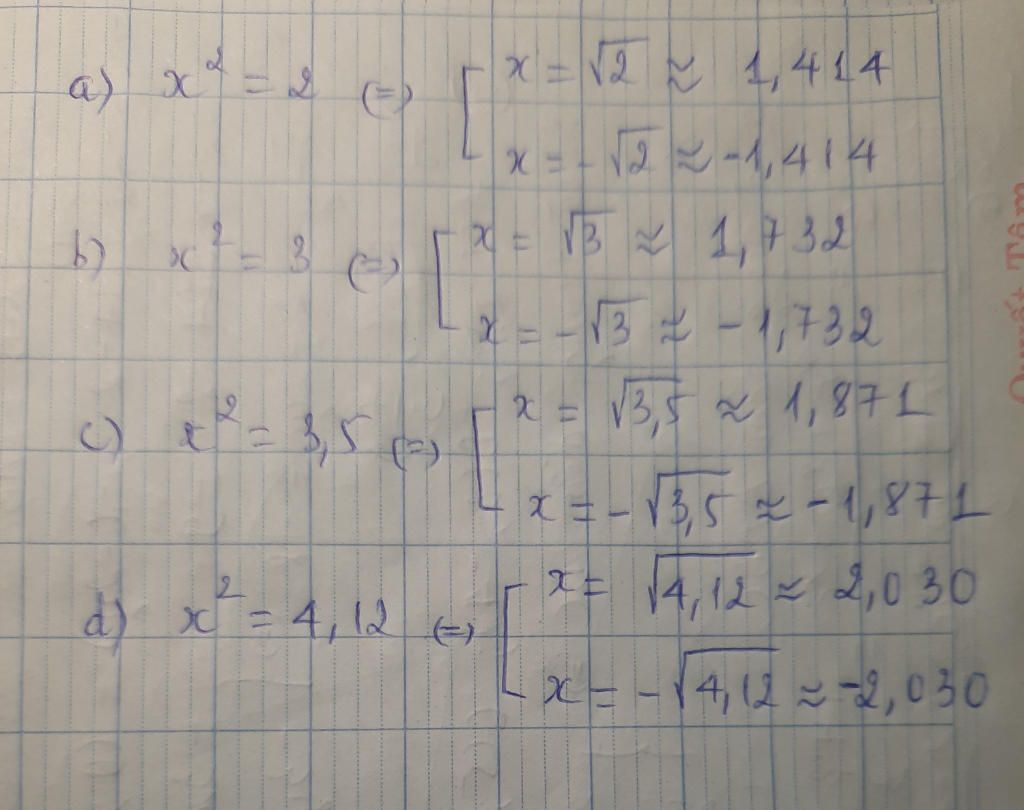 a) x² = 2 (=) [ x = √2 ≈ 1,414
x = -√2 ≈ -1,414
b) x² = 3 (=) [ x = √3 ≈ 1,732
x = -√3 ≈ -1,732
c) x² = 3,5 (=) [ x = √3,5 ≈ 1,871
x = -√3,5 ≈ -1,871
d) x² = 4,12 (=) [ x = √4,12 ≈ 2,030
x = -√4,12 ≈ -2,030
Quyết Tâm